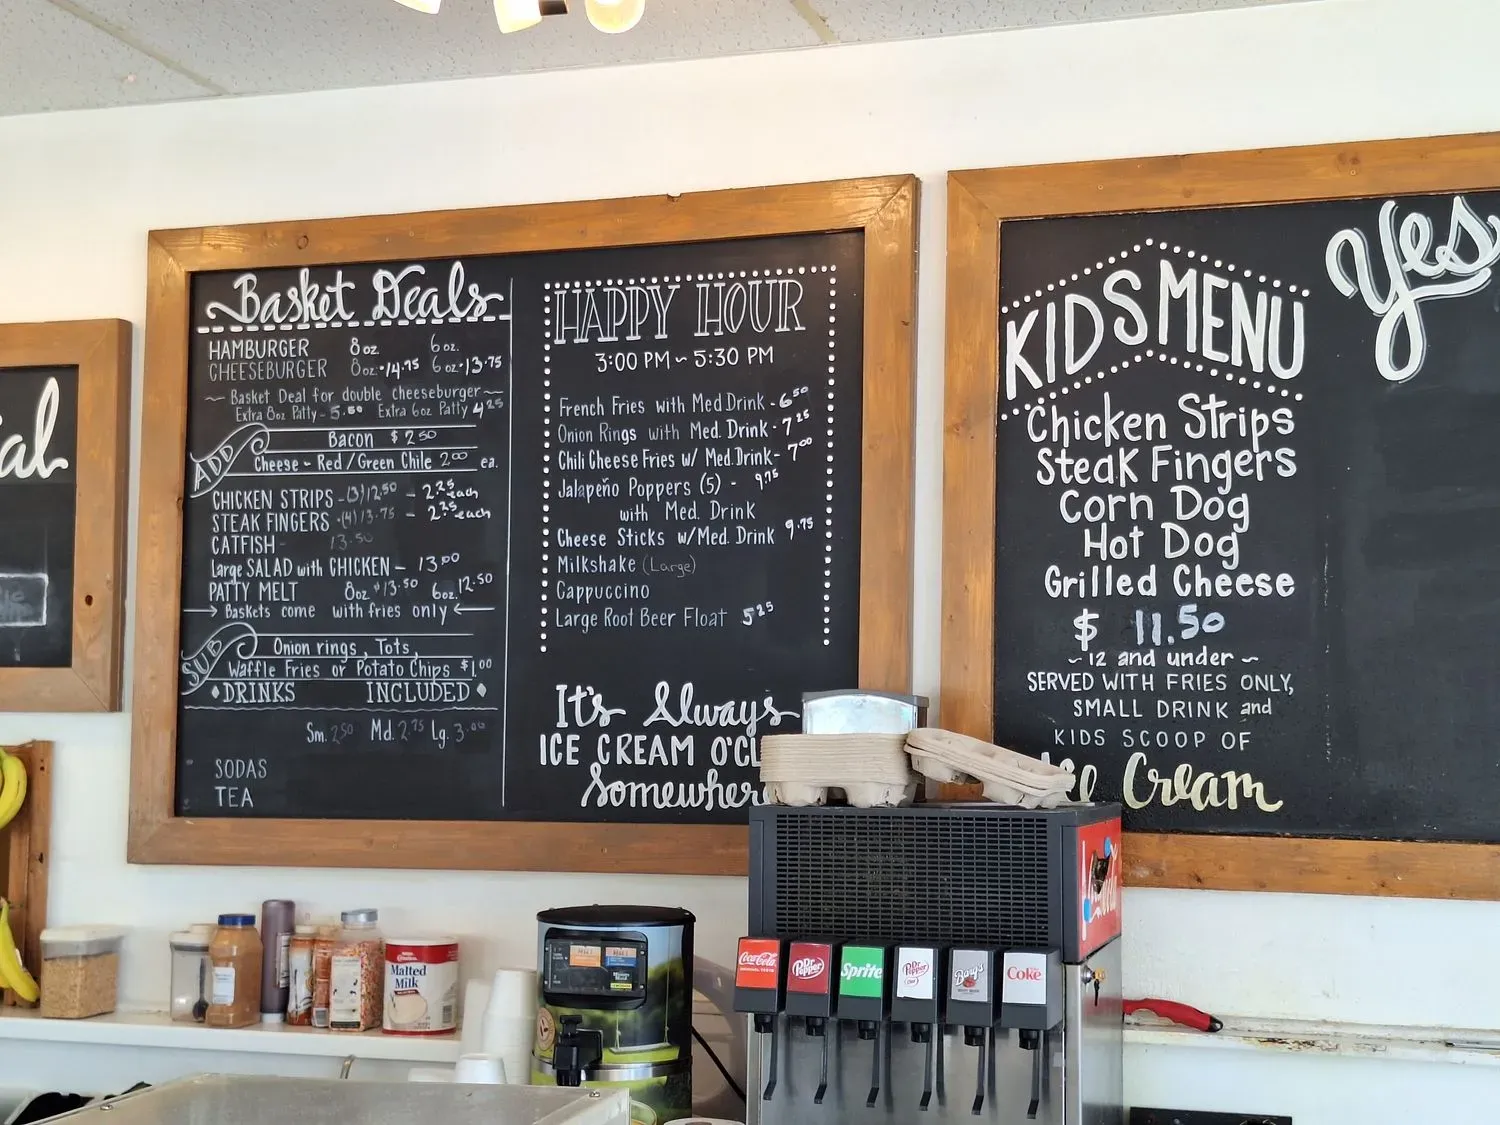 ial
Basket Deals
HAMBURGER 8oz. 6oz.
CHEESEBURGER 8oz. 14.75 6oz. 13.75
~ Basket Deal for double cheeseburger ~
Extra 8oz Patty - 5.50 Extra 6oz Patty 4.25
ADD
Bacon $2.50
Cheese - Red/Green Chile 2.00 ea.
CHICKEN STRIPS - (3) 12.50 - 2.25 each
STEAK FINGERS - (4) 13.75 - 2.25 each
CATFISH - 13.50
Large SALAD with CHICKEN - 13.00
PATTY MELT 8oz $13.50 6oz. 12.50
→ Baskets come with fries only ←
SUB
Onion rings, Tots,
Waffle Fries or Potato Chips $1.00
♦DRINKS INCLUDED♦
Sm. 2.50 Md. 2.75 Lg. 3.00
SODAS
TEA
HAPPY HOUR
3:00 PM ~ 5:30 PM
French Fries with Med Drink - 6.50
Onion Rings with Med. Drink - 7.25
Chili Cheese Fries w/ Med. Drink - 7.00
Jalapeño Poppers (5) - 9.75
with Med. Drink
Cheese Sticks w/Med. Drink 9.75
Milkshake (Large)
Cappuccino
Large Root Beer Float 5.25
It's Always
ICE CREAM O'CL
Somewhere
KIDS MENU
Chicken Strips
Steak Fingers
Corn Dog
Hot Dog
Grilled Cheese
$ 11.50
~ 12 and under ~
SERVED WITH FRIES ONLY,
SMALL DRINK and
KIDS SCOOP OF
Ice Cream
Yes
Malted
Milk
Coca-Cola
Dr Pepper
Sprite
Dr Pepper
Barq's
Coke